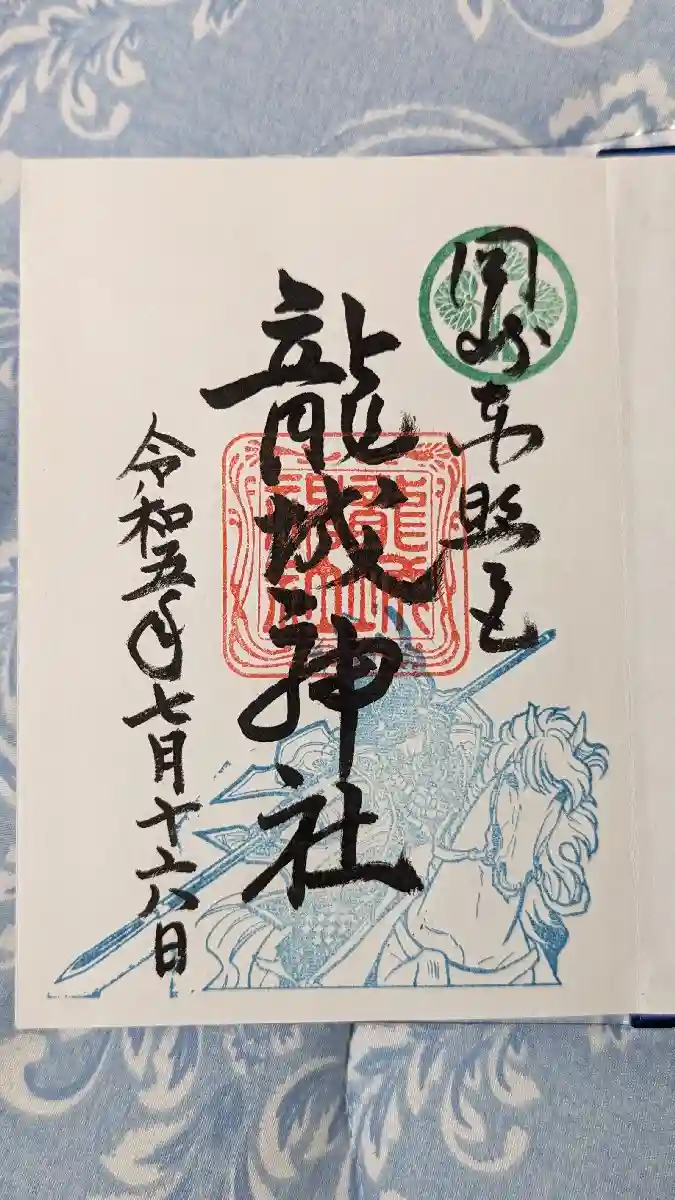 岡崎東照宮
龍城神社
龍城神社
令和五年七月十六日